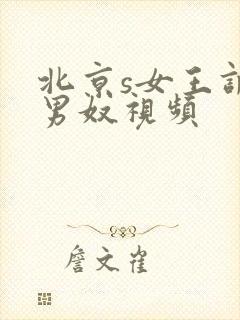 北京s女王訓
男奴視頻
詹文雀